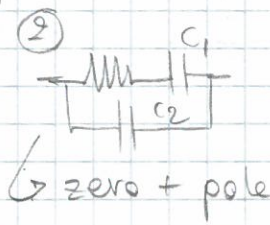 2
C1
C2
↳ zero + pole